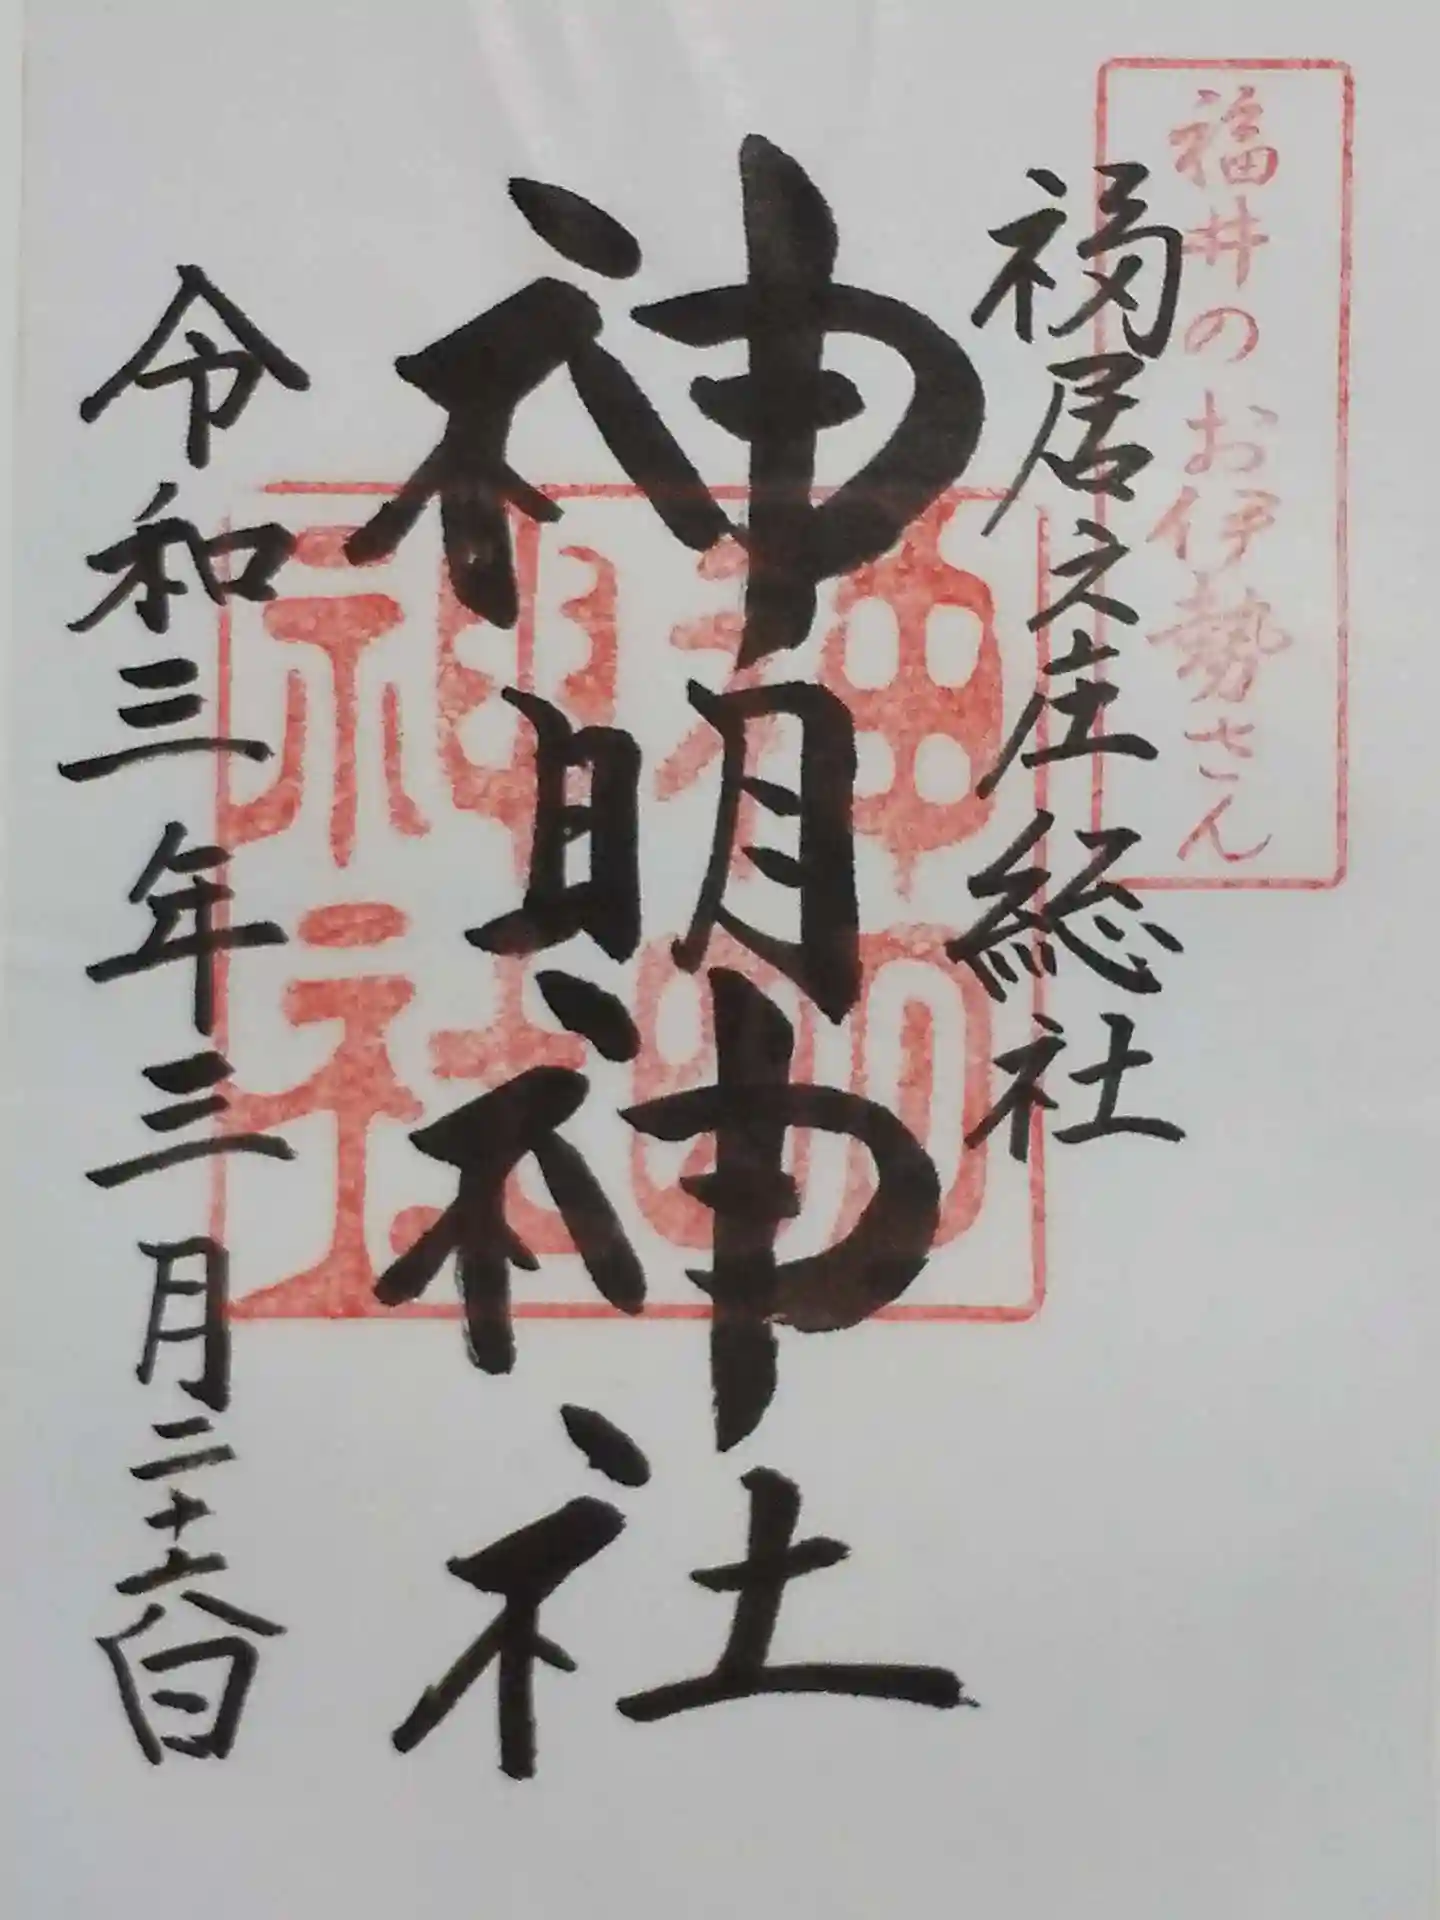 福井のお伊勢さん
福居之庄 総社
神明神社
神明神社
令和三年三月二十六日